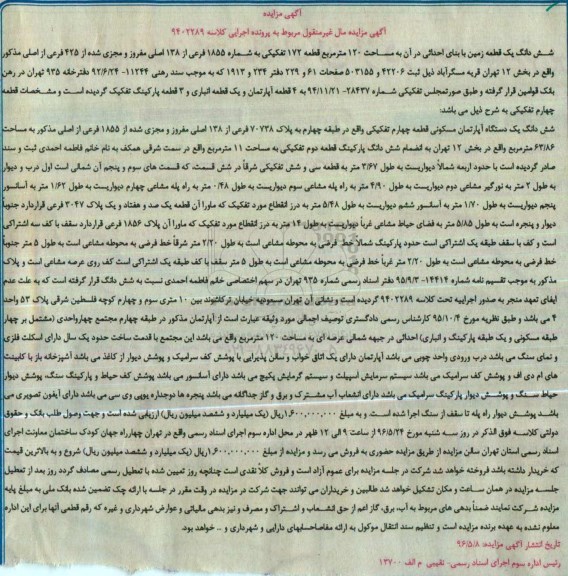 آگهی مزایده
آگهی مزایده مال غیرمنقول مربوط به پرونده اجرایی کلاسه ۹۴۰۲۲۸۹
شش دانگ یک قطعه زمین با بنای احداثی در آن به مساحت ۱۲۰ مترمربع قطعه ۱۷۲ تفکیکی به شماره ۱۸۵۵ فرعی از ۱۳۸ اصلی مفروز و مجزی شده از ۴۲۵ فرعی از اصلی مذکور
واقع در بخش ۱۲ تهران قریه مسگرآباد ذیل ثبت ۴۲۲۰۶ و ۵۰۳۱۵۵ صفحات ۶۱ و ۲۲۹ دفتر ۲۳۴ و ۱۹۱۳ که به موجب سند رهنی ۱۱۲۴۴- ۹۲/۶/۲۴ دفترخانه ۹۳۵ تهران در رهن
بانک قوامین قرار گرفته و طبق صورتمجلس تفکیکی شماره ۲۸۴۳۷- ۹۴/۱۱/۲۱ به ۴ قطعه آپارتمان و یک قطعه انباری و ۳ قطعه پارکینگ تفکیک گردیده است و مشخصات قطعه
چهارم تفکیکی به شرح ذیل می باشد:
شش دانگ یک دستگاه آپارتمان مسکونی قطعه چهارم تفکیکی واقع در طبقه چهارم به پلاک ۷۰۷۳۸ فرعی از ۱۳۸ اصلی مفروز و مجزی شده از ۱۸۵۵ فرعی از اصلی مذکور به مساحت
۶۳/۸۶ مترمربع واقع در بخش ۱۲ تهران به انضمام شش دانگ پارکینگ قطعه دوم تفکیکی به مساحت ۱۱ مترمربع واقع در سمت شرقی همکف به نام خانم فاطمه احمدی ثبت و سند
صادر گردیده است با حدود اربعه شمالاً دیواریست به طول ۳/۶۷ متر به قطعه سی و شش تفکیکی شرقاً در شش قسمت، که قسمت های سوم و پنجم آن شمالی است اول درب و دیوار
به طول ۲ متر به نورگیر مشاعی دوم دیواریست به طول ۴/۹۰ متر به راه پله مشاعی سوم دیواریست به طول ۰/۴۸ متر به راه پله مشاعی چهارم دیواریست به طول ۱/۶۲ متر به آسانسور
پنجم دیواریست به طول ۱/۷۰ متر به آسانسور ششم دیواریست به طول ۵/۴۸ متر به درز انقطاع مورد تفکیک که ماورا آن قطعه یک صد و هفتاد و یک پلاک ۳۰۴۷ فرعی قراردارد جنوباً
دیوار و پنجره است به طول ۵/۸۵ متر به فضای حیاط مشاعی غرباً دیواریست به طول ۱۴ متر به درز انقطاع مورد تفکیک که ماورا آن پلاک ۱۸۵۶ فرعی قراردارد سقف با کف سه اشتراکی
است و کف با سقف طبقه یک اشتراکی است حدود پارکینگ شمالاً خط فرضی به محوطه مشاعی است به طول ۲/۲۰ متر شرقاً خط فرضی به محوطه مشاعی است به طول ۵ متر جنوباً
خط فرضی به محوطه مشاعی است به طول ۲/۲۰ متر غرباً خط فرضی به محوطه مشاعی است به طول ۵ متر سقف با کف طبقه یک اشتراکی است کف روی عرصه مشاعی است و پلاک
مذکور به موجب تقسیم نامه شماره ۱۴۴۱۴- ۹۵/۹/۳ دفتر اسناد رسمی شماره ۹۳۵ تهران در سهم اختصاصی خانم فاطمه احمدی نسبت به شش دانگ قرار گرفته است که به علت عدم
ایفای تعهد منجر به صدور اجراییه تحت کلاسه ۹۴۰۲۲۸۹ گردیده است و نشانی آن تهران مسعودیه خیابان ترکاشوند بین ۱۰ متری سوم و چهارم کوچه فلسطین شرقی پلاک ۵۳ واحد
۴ می باشد و طبق نظریه مورخ ۹۵/۱۰/۴ کارشناس رسمی دادگستری توصیف اجمالی مورد وثیقه عبارت است از آپارتمان مذکور در طبقه چهارم مجتمع چهارواحدی (مشتمل بر چهار
طبقه مسکونی و یک طبقه پارکینگ و انباری) احداثی در جبهه شمالی عرصه ای به مساحت ۱۲۰ مترمربع واقع می باشد این مجتمع با قدمت ساخت حدود یک سال دارای اسکلت فلزی
و نمای سنگ می باشد درب ورودی واحد چوبی می باشد آپارتمان دارای یک اتاق خواب و سالن پذیرایی با پوشش کف سرامیک و پوشش دیوار از کاغذ می باشد آشپزخانه باز با کابینت
های ام دی اف و پوشش کف سرامیک می باشد سیستم سرمایش اسپیلت و سیستم گرمایش پکیج می باشد دارای آسانسور می باشد پوشش کف حیاط و پارکینگ سنگ، پوشش دیوار
حیاط سنگ و پوشش دیوار پارکینگ سرامیک می باشد دارای انشعاب آب مشترک و برق و گاز جداگانه می باشد پنجره ها دوجداره یو‌پی وی سی می باشد دارای آیفون تصویری می
باشد پوشش دیوار راه پله تا سقف از سنگ اجرا شده است. و به مبلغ ۱،۶۰۰،۰۰۰،۰۰۰ ریال (یک میلیارد و ششصد میلیون ریال) ارزیابی شده است و جهت وصول طلب بانک و حقوق
دولتی کلاسه فوق الذکر در روز سه شنبه مورخ ۹۶/۵/۲۴ از ساعت ۹ الی ۱۲ ظهر در محل اداره سوم اجرای اسناد رسمی واقع در تهران چهارراه جهان کودک ساختمان معاونت اجرای
اسناد رسمی استان تهران سالن مزایده از طریق مزایده حضوری به فروش می رسد و مزایده از مبلغ ۱،۶۰۰،۰۰۰،۰۰۰ ریال (یک میلیارد و ششصد میلیون ریال) شروع و به بالاترین قیمت
که خریدار داشته باشد فروخته خواهد شد شرکت در جلسه مزایده برای عموم آزاد است و فروش کلاً نقدی است چنانچه روز تعیین شده با تعطیل رسمی مصادف گردد روز بعد از تعطیل
جلسه مزایده در همان ساعت و مکان تشکیل خواهد شد طالبین و خریداران می توانند جهت شرکت در مزایده در وقت مقرر در جلسه با ارائه چک تضمین شده بانک ملی به مبلغ پایه
مزایده شرکت نمایند ضمناً بدهی های مربوط به آب، برق، گاز اعم از حق انشعاب و اشتراک و مصرف و نیز بدهی مالیاتی و عوارض شهرداری و غیره که رقم قطعی آنها برای این اداره
معلوم نشده به عهده برنده مزایده است و تنظیم سند انتقال موکول به ارائه مفاصاحسابهای دارایی و شهرداری و .. خواهد بود.
تاریخ انتشار آگهی مزایده: ۹۶/۵/۸
رئیس اداره سوم اجرای اسناد رسمی- نقیبی م الف ۱۳۷۰۰